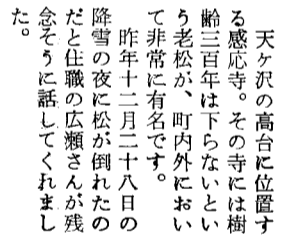 天ケ沢の高台に位置す
る感応寺。その寺には樹
齢三百年は下らないとい
う老松が、町内外におい
て非常に有名です。
昨年十二月二十八日の
降雪の夜に松が倒れたの
だと住職の広瀬さんが残
念そうに話してくれまし
た。